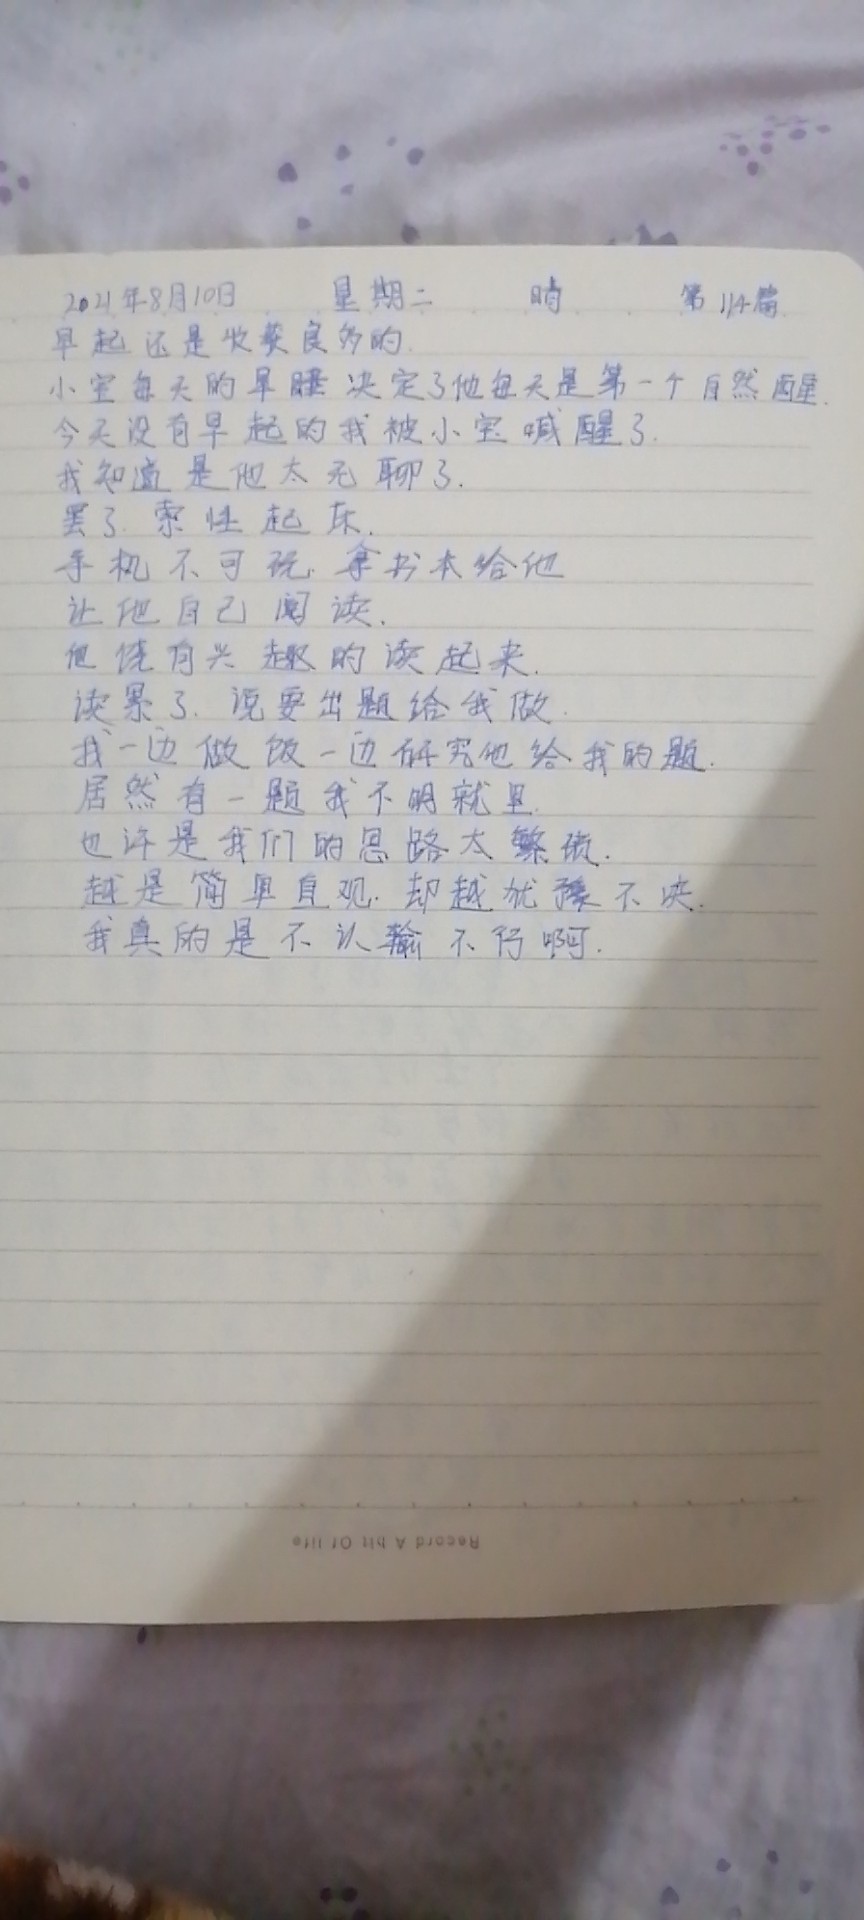 2021年8月10日 星期二 晴 第114篇
早起还是收获良多的.
小宝每天的早睡决定了他每天是第一个自然醒.
今天没有早起的我被小宝喊醒了.
我知道是他太无聊了.
罢了.索性起床.
手机不可玩.拿书本给他
让他自己阅读.
他饶有兴趣的读起来.
读累了.说要出题给我做.
我一边做饭一边研究他给我的题.
居然有一题我不明就里.
也许是我们的思路太繁琐.
越是简单直观.却越犹豫不决.
我真的是不认输不行啊.
Record A bit Of life